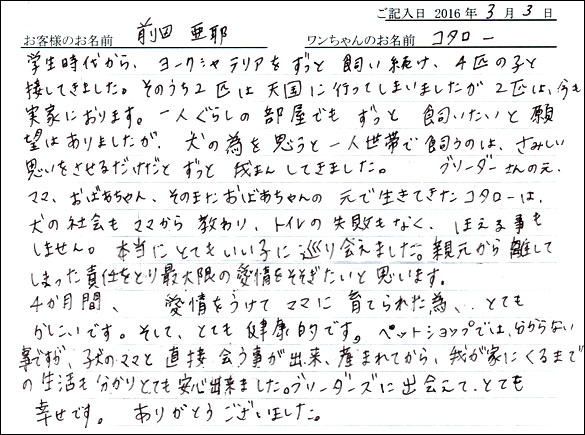 ご記入日 2016年 3月 3日
お客様のお名前 前田 亜耶 ワンちゃんのお名前 コタロー
学生時代から、ヨークシャテリアをずっと飼い続け、4匹の子と
接してきました。そのうち2匹は天国に行ってしまいましたが2匹は、今も
実家におります。一人ぐらしの部屋でもずっと飼いたいと願
望はありましたが、犬の為を思うと一人世帯で飼うのは、さみしい
思いをさせるだけだとずっと我まんしてきました。 ブリーダーさんの元、
ママ、おばあちゃん、そのまたおばあちゃんの元で生きてきたコタローは、
犬の社会もママから教わり、トイレの失敗もなく、ほえる事も
しません。本当にとてもいい子に巡り会えました。親元から離して
しまった責任をとり最大限の愛情をそそぎたいと思います。
4か月間、愛情をうけてママに育てられた為、とても
かしこいです。そして、とても健康的です。ペットショップでは、分からない
事ですが、子犬のママと直接会う事が出来、産まれてから、我が家にくるまで
の生活も分かりとても安心出来ました。ブリーダーズに出会えて、とても
幸せです。 ありがとうございました。